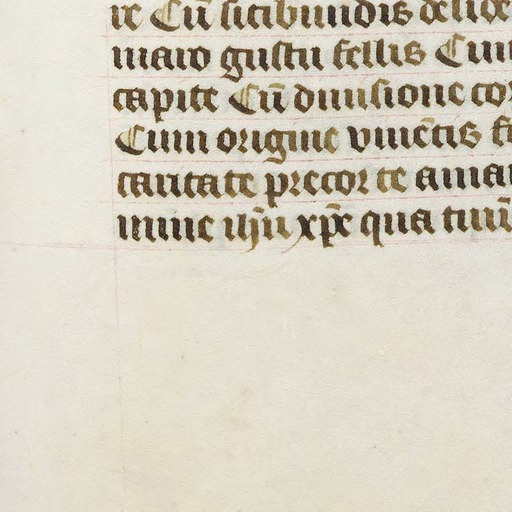 re Cū sitibundis deside
maro gustu fellis Cum
capite Cū diuisione cor
Cum origine viuētis f
caritate precor te aman
mine ihū xp̄e qua tuū